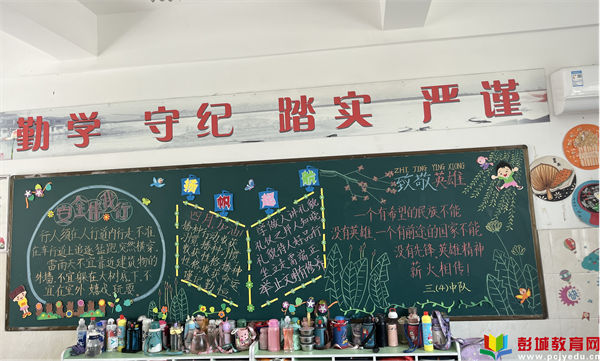 勤学 守纪 踏实 严谨
安全伴我行
行人须在人行道内行走,不准
在车行道上追逐、猛跑、突然横穿
雷雨天不宜靠近建筑物的
外墙,不宜躲在大树底下,不
宜在室外嬉戏玩耍
扬帆起航
学做人讲礼貌
举止文明
ZHI JING YING XIONG
致敬英雄
一个有希望的民族不能
没有英雄,一个有前途的国家不能
没有先锋,英雄精神
薪火相传!
三(4)中队
彭城教育网
www.pcjyedu.cn